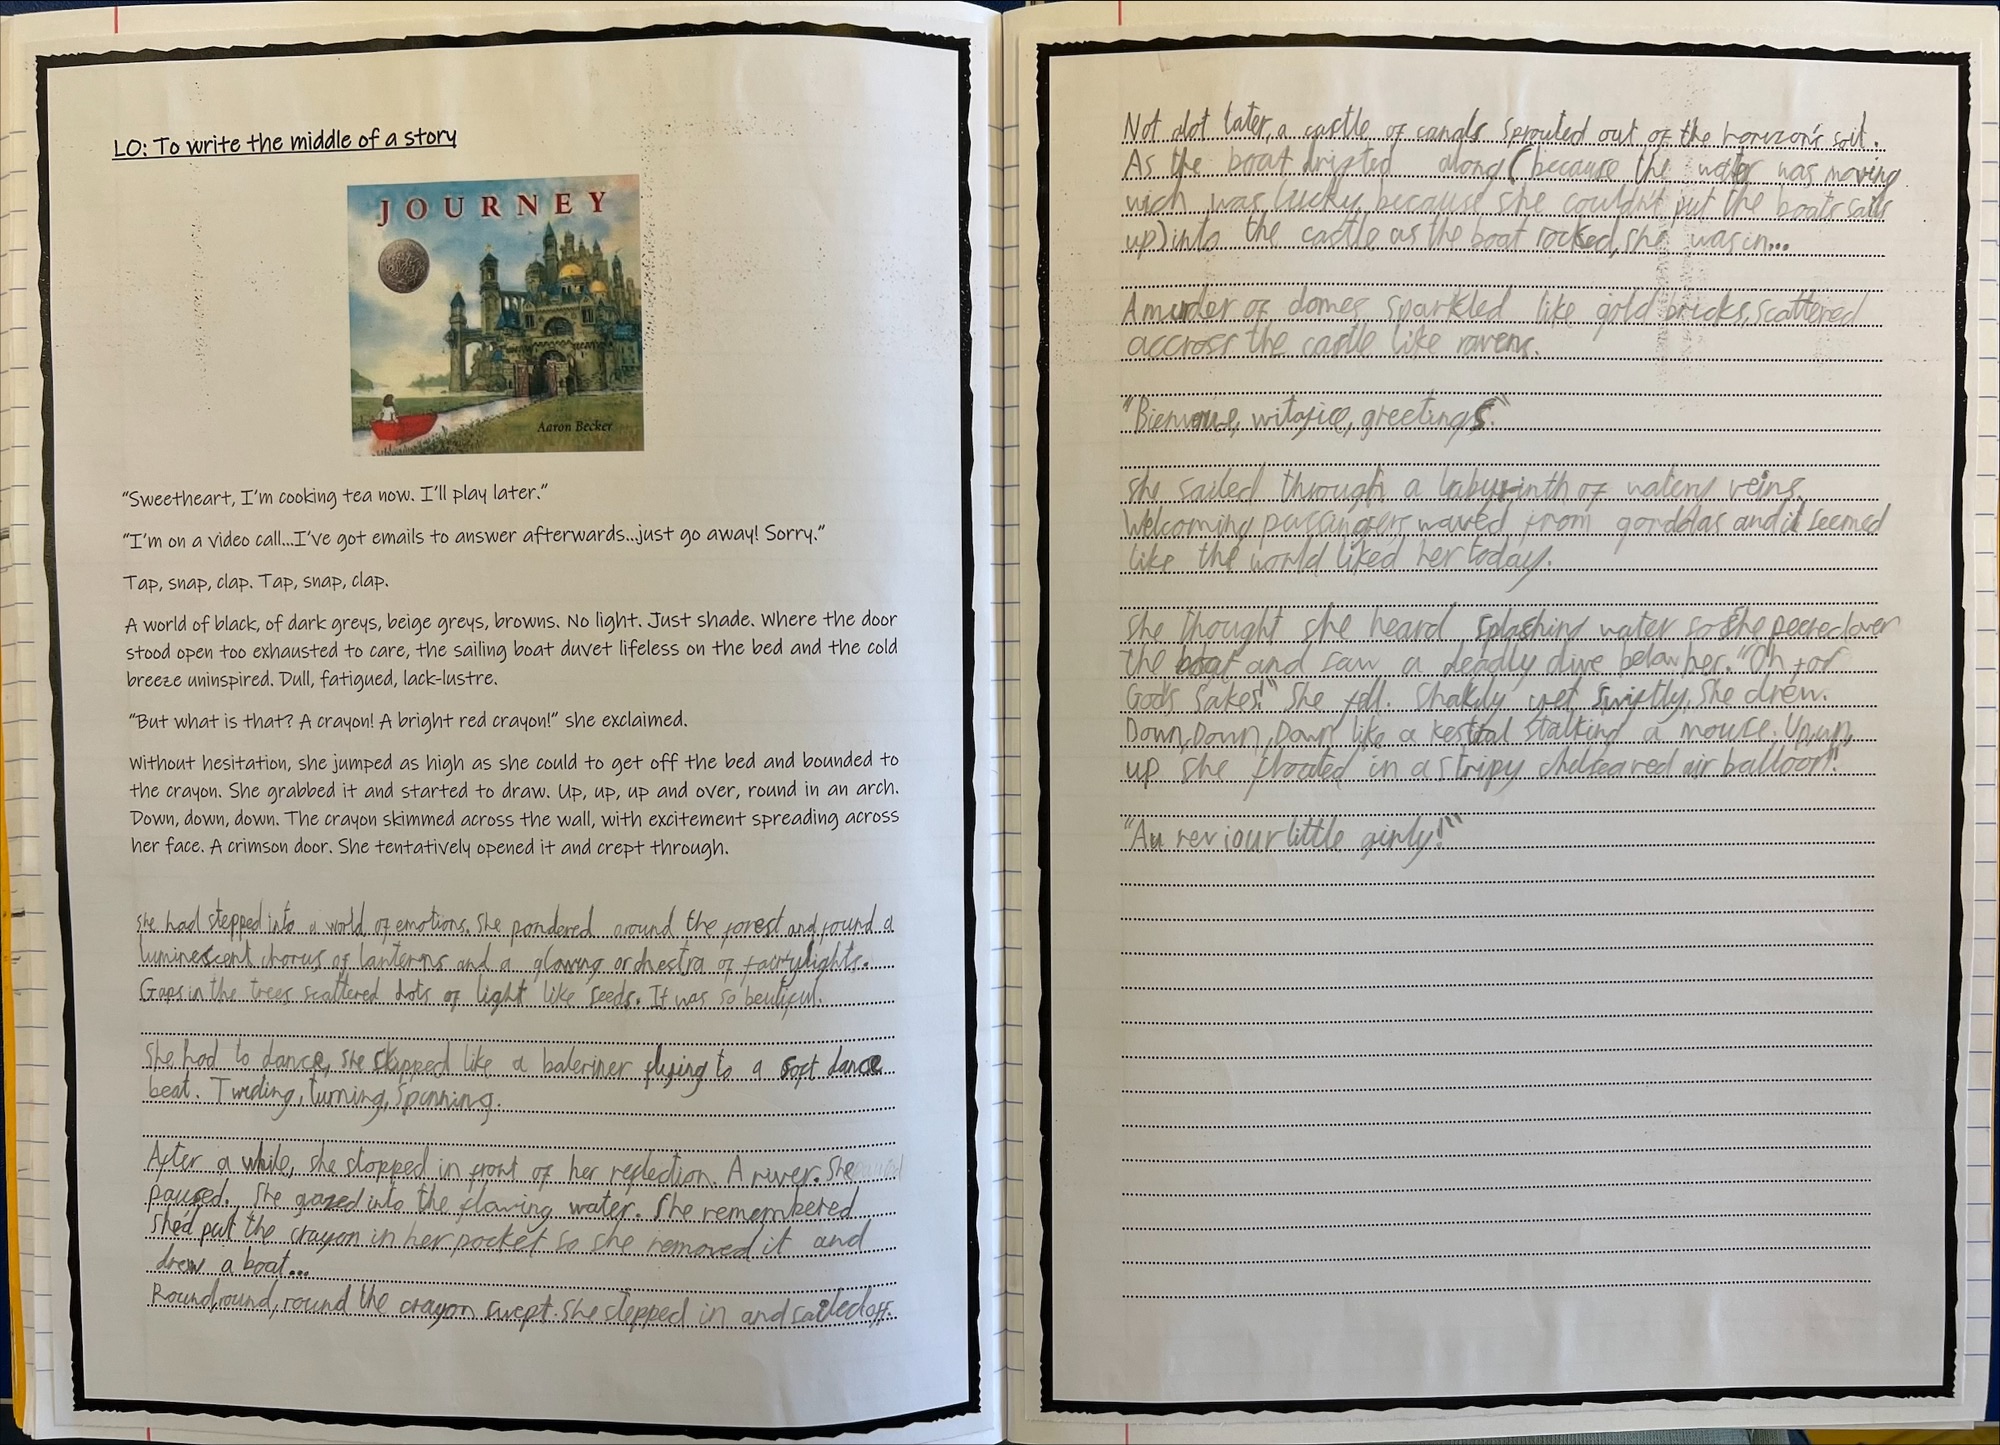 LO: To write the middle of a story
JOURNEY
Aaron Becker
"Sweetheart, I'm cooking tea now. I'll play later."
"I'm on a video call...I've got emails to answer afterwards...just go away! Sorry."
Tap, snap, clap. Tap, snap, clap.
A world of black, of dark greys, beige greys, browns. No light. Just shade. Where the door
stood open too exhausted to care, the sailing boat duvet lifeless on the bed and the cold
breeze uninspired. Dull, fatigued, lack-lustre.
"But what is that? A crayon! A bright red crayon!" she exclaimed.
Without hesitation, she jumped as high as she could to get off the bed and bounded to
the crayon. She grabbed it and started to draw. Up, up, up and over, round in an arch.
Down, down, down. The crayon skimmed across the wall, with excitement spreading across
her face. A crimson door. She tentatively opened it and crept through.
She had stepped into a world of emotions. She pondered around the forest and found a
luminescent chorus of lanterns and a glowing orchestra of fairylights.
Gaps in the trees scattered dots of light like seeds. It was so beutiful.
She had to dance, she skipped like a baleriner flying to a soft dance
beat. Twirling, turning, spinning.
After a while, she stopped in front of her reflection. A river. She
paused. She gazed into the flowing water. She remembered
she'd put the crayon in her pocket so she removed it and
drew a boat...
Round, round, round the crayon swept. She stepped in and sailed off.
Not alot later, a castle of canals sprouted out of the horizon's soil.
As the boat drifted along (because the water was moving
wich was lucky because she couldn't put the boats sails
up) into the castle as the boat rocked, she was in...
A murder of domes sparkled like gold bricks, scattered
accross the castle like ravens.
"greetings."
she sailed through a labyrinth of watery veins.
Welcoming passingers waved from gondolas and it seemed
like the world liked her today.
She thought she heard splashing water so she peered over
the boat and saw a deadly dive below her. "Oh, for
God's Sakes!" She fell. Shakily yet swiftly, she drew.
Down, Down, Down like a kestral stalking a mouse. Up, up,
up she floated in a stripy chelsea red air balloon!
"Au reviour little girly!"